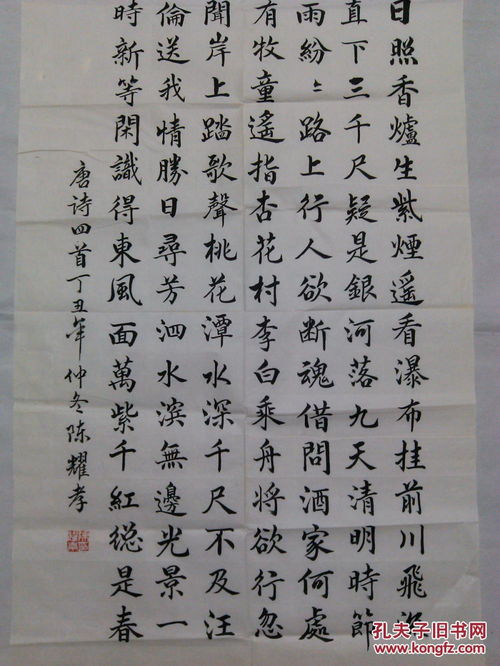 日照香爐生紫煙遙看瀑布挂前川飛流
直下三千尺疑是銀河落九天清明時節
雨紛〻路上行人欲断魂借問酒家何處
有牧童遙指杏花村李白乘舟將欲行忽
聞岸上踏歌聲桃花潭水深千尺不及汪
倫送我情勝日尋芳泗水滨無邊光景一
時新等閑識得東風面萬紫千紅総是春
唐诗四首丁丑年仲冬陈耀孝
孔夫子旧书网
www.kongfz.com